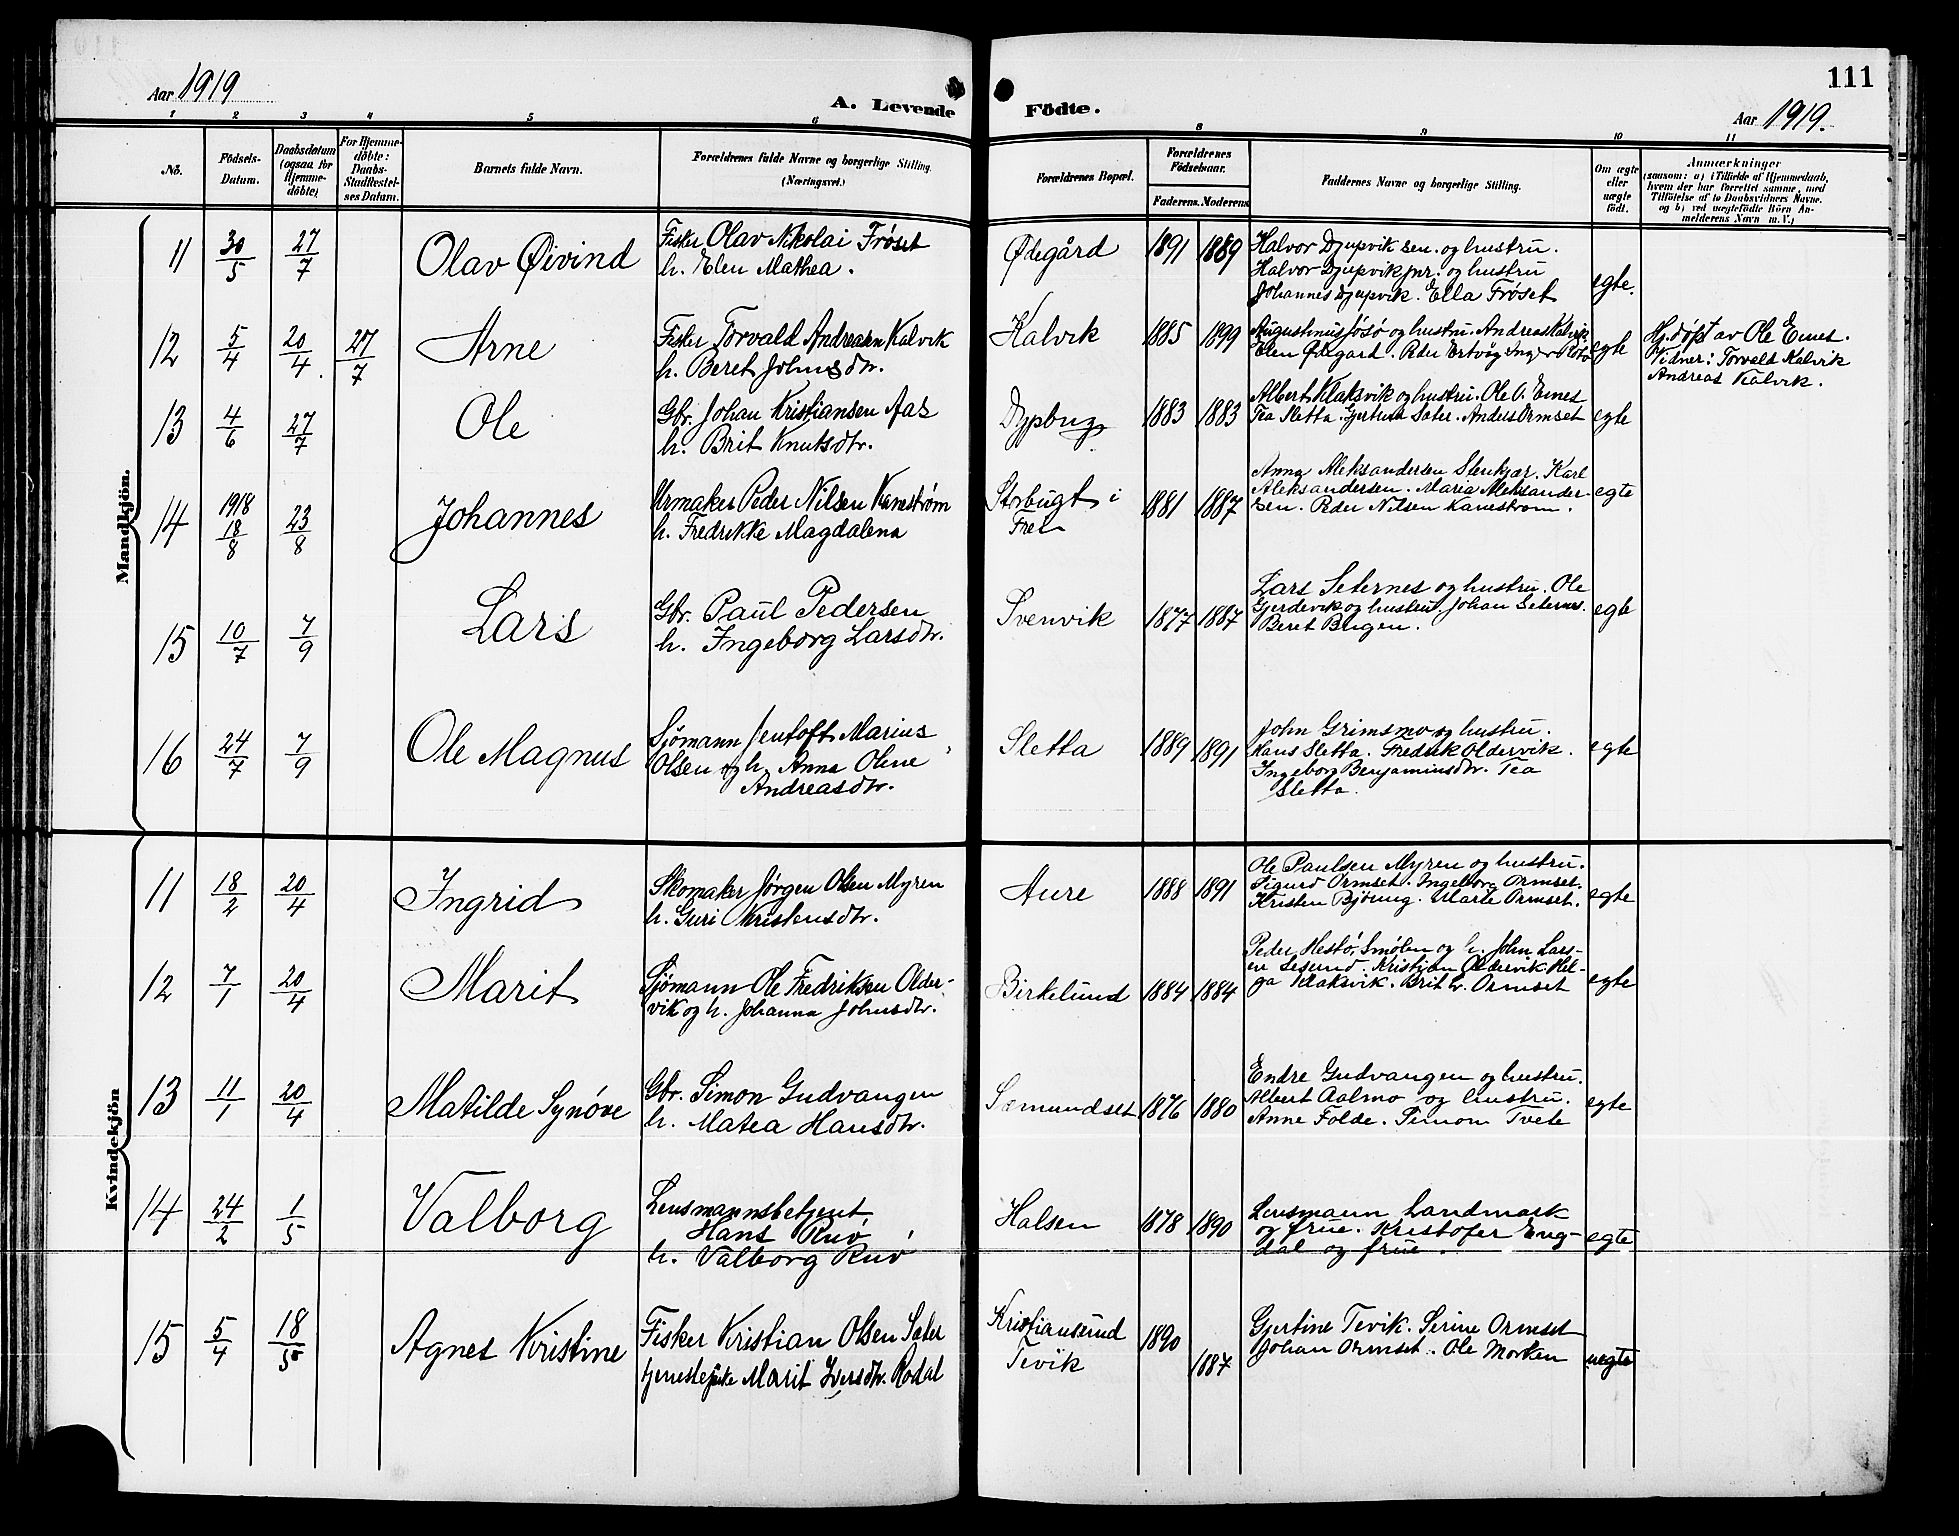 111
Aar 1919
A. Levende Födte.
Aar 1919.
1 2 3 4 5 6 8 9 10 11
No.
Födsels-Datum.
Daabsdatum (ogsaa for Hjemmedöbte)
For Hjemmedöbte: Daabs-Stadfestelses Datum.
Barnets fulde Navn.
Forældrenes fulde Navne og borgerlige Stilling. (Næringsvei.)
Forældrenes Bopæl.
Forældrenes Födselsaar.
Faderens. Moderens.
Faddernes Navne og borgerlige Stilling.
Om ægte eller uægte födt.
Anmærkninger
(saasom: a) i Tilfælde af Hjemmedaab, hvem der har forrettet samme, med Tilföielse af to Daabsvidners Navne. og b) ved uægtefödte Börn Anmelderens Navn m. V.)
Mandkjön.
11 30/5 27/7 Olav Øivind
Fisker Olav Nikolai Frøset
h. Elen Mathea.
Ødegård 1891 1889
Halvor Djupvik sen. og hustru.
Halvor Djupvik jnr. og hustru
Johannes Djupvik. Ella Frøset
egte.
12 5/4 20/4 27/7 Arne
Fisker Torvald Andreasen Kalvik
h. Beret Johnsdtr.
Kalvik 1885 1899
Augustinus Josø og hustru. Andreas Kalvik.
Elen Ødegard. Peder Ertvåg
egte
Hj. døpt av Ole Eines.
Vidner: Torvalt Kalvik
Andreas Kalvik.
13 4/6 27/7 Ole
Gbr. Johan Kristiansen Aas
h. Brit Knutsdtr.
1883 1883
Albert Klaksvik og hustru. Ole O. Eines
Tea Sletta. Gjertrud Sater. Anders Ormset
egte
14 1918 18/8 23/8 Johannes
Urmaker Peder Nilsen Kanestrøm
h. Fredrikke Magdalena
Storbugt i
Frei
1881 1887
Anna Aleksandersen Stenkjær. Karl
Aleksandersen. Maria Aleksander-
sen. Peder Nilsen Kanestrøm.
egte
15 10/7 7/9 Lars
Gbr. Paul Pedersen
h. Ingeborg Larsdtr.
Svenvik 1877 1887
Lars Seternes og hustru. Ole
Gjerdevik og hustru. Johan Seternes.
Beret Bugen.
egte
16 24/7 7/9 Ole Magnus
Sjømann Jentoft Marius
Olsen og h. Anna Oline
Andreasdtr.
Sletta 1889 1891
John Grimsmo og hustru.
Hans Sletta. Fredrik Oldervik.
Ingeborg Benjaminsdtr. Tea
Sletta.
egte
Kvindekjön
11 18/2 20/4 Ingrid
Skomaker Jørgen Olsen Myren
h. Guri Kristensdtr.
Aure 1888 1891
Ole Paulsen Myren og hustru.
Sigurd Ormset. Ingeborg Ormset.
Kristen Bjøring. Marie Ormset.
egte
12 7/1 20/4 Marit
Sjømann Ole Fredriksen Older-
vik og h. Johanna Johnsdtr.
Birkelund 1884 1884
Peder Hestø, Smølen og h. John Lars-
en Kristian Oldervik Hel-
ga Klaksvik. Brit L. Ormset
egte
13 11/1 20/4 Matilde Synøve
Gbr. Simon Gudvangen
h. Matea Hansdtr.
Sæmundset 1876 1880
Endre Gudvangen og hustru.
Albert Aalmo og hustru.
Anne Folde. Simon Tvete
egte
14 24/2 1/5 Valborg
Lensmannsbetjent
Hans Ruø
h. Valborg Ruø
Halsen 1878 1890
Lensmann Landmark
og frue. Kristofer Eng-
dal og frue.
egte
15 5/4 18/5 Agnes Kristine
Fisker Kristian Olsen Sater
tjenestepike Marit Iversdtr. Rodal
Kristiansund
Tevik
1890 1887
Gjertine Tevik. Serine Ormset
Johan Ormset. Ole Morken
uegte